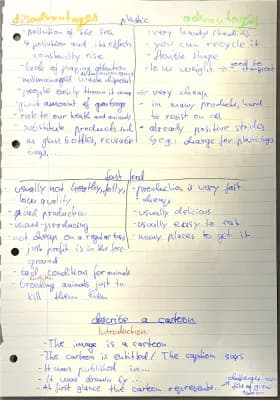 disadvantages plastic advantages
- pollution of the sea
- pollution and its effects
constantly rise
- lack of paying attention
- mismanaged waste disposal
- people easily throw it away
- giant amount of garbage
- risk to our health and animals
- substitute products such
as glass bottles, reusable
bags,
- very handy handles
- you can recycle it
- flexible shape
- low weight → good to transport
- very cheap
- in many products, hard
to resist on
- already positive strides
e.g. charge for plastic bags
fast food
- usually not
low quality
- production
- mass-producing
- not always on a regular
just profit is in the fore-
ground
- conditions for animals
- breeding animals just to
kill them
- production is very fast
cheap
- usually delicious
- usually easy to eat
- many places to get it
describe a cartoon
Introduction
- The image is a cartoon
- The cartoon is entitled / The caption says
- It was published in...
- It was drawn by ...
- At first glance the cartoon represents...